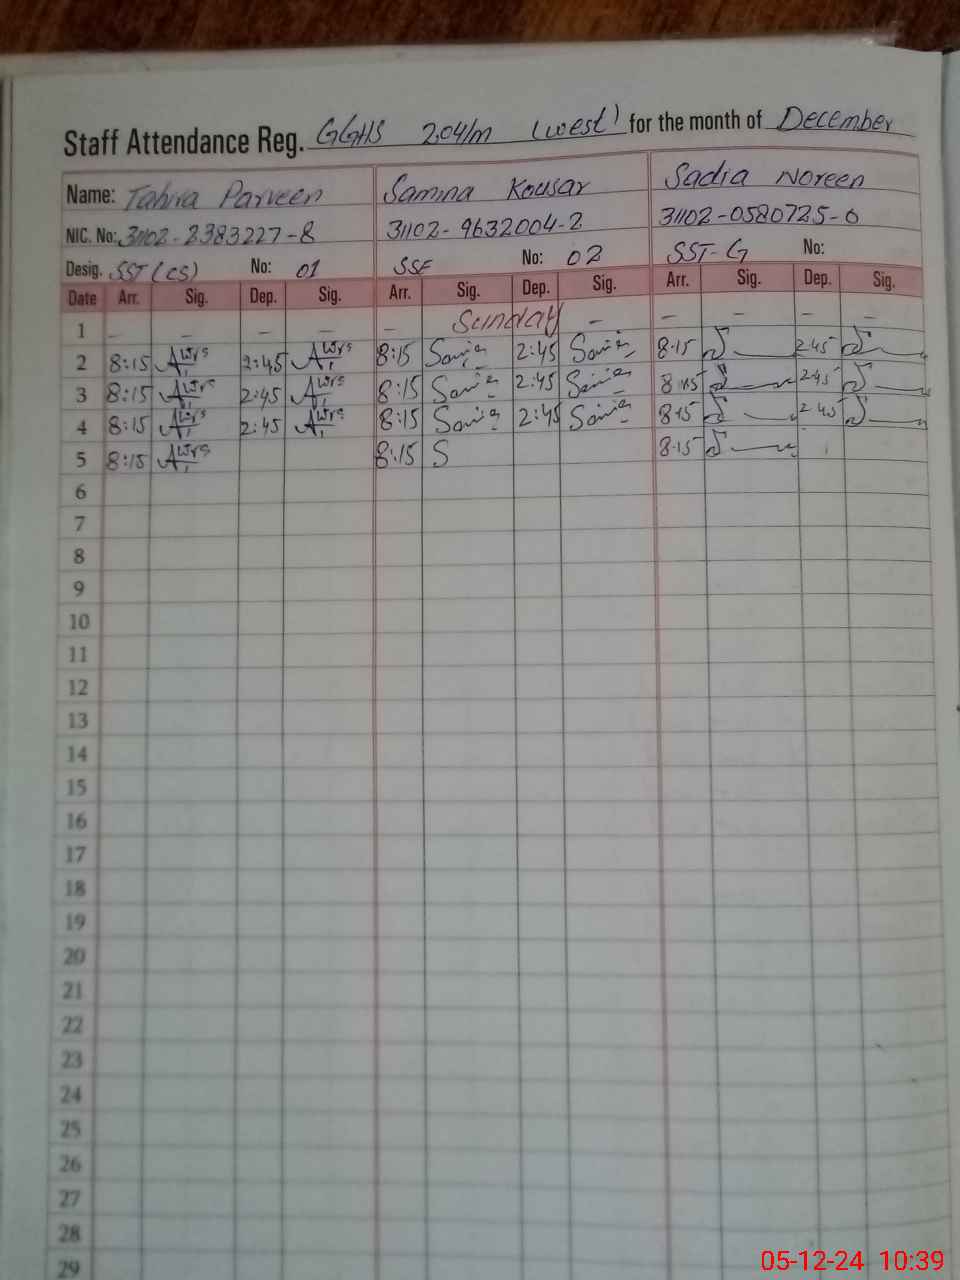 Staff Attendance Reg. GGHS 204/m (west) for the month of December
Name: Tahira Parveen Samina Kousar Sadia Noreen
NIC. No: 31102-2383227-8 31102-9632004-2 31102-0580725-0
Desig. SST (CS) No: 01 SSE No: 02 SST-G No:
Date Arr. Sig. Dep. Sig. Arr. Sig. Dep. Sig. Arr. Sig. Dep. Sig.
1 - - - - - Sunday - - - - -
2 8:15 2:45 8:15 2:45 8:15 2:45
3 8:15 2:45 8:15 2:45 8:15 2:45
4 8:15 2:45 8:15 2:45 8:15 2:45
5 8:15 8:15 S 8:15
6
7
8
9
10
11
12
13
14
15
16
17
18
19
20
21
22
23
24
25
26
27
28
29
05-12-24 10:39